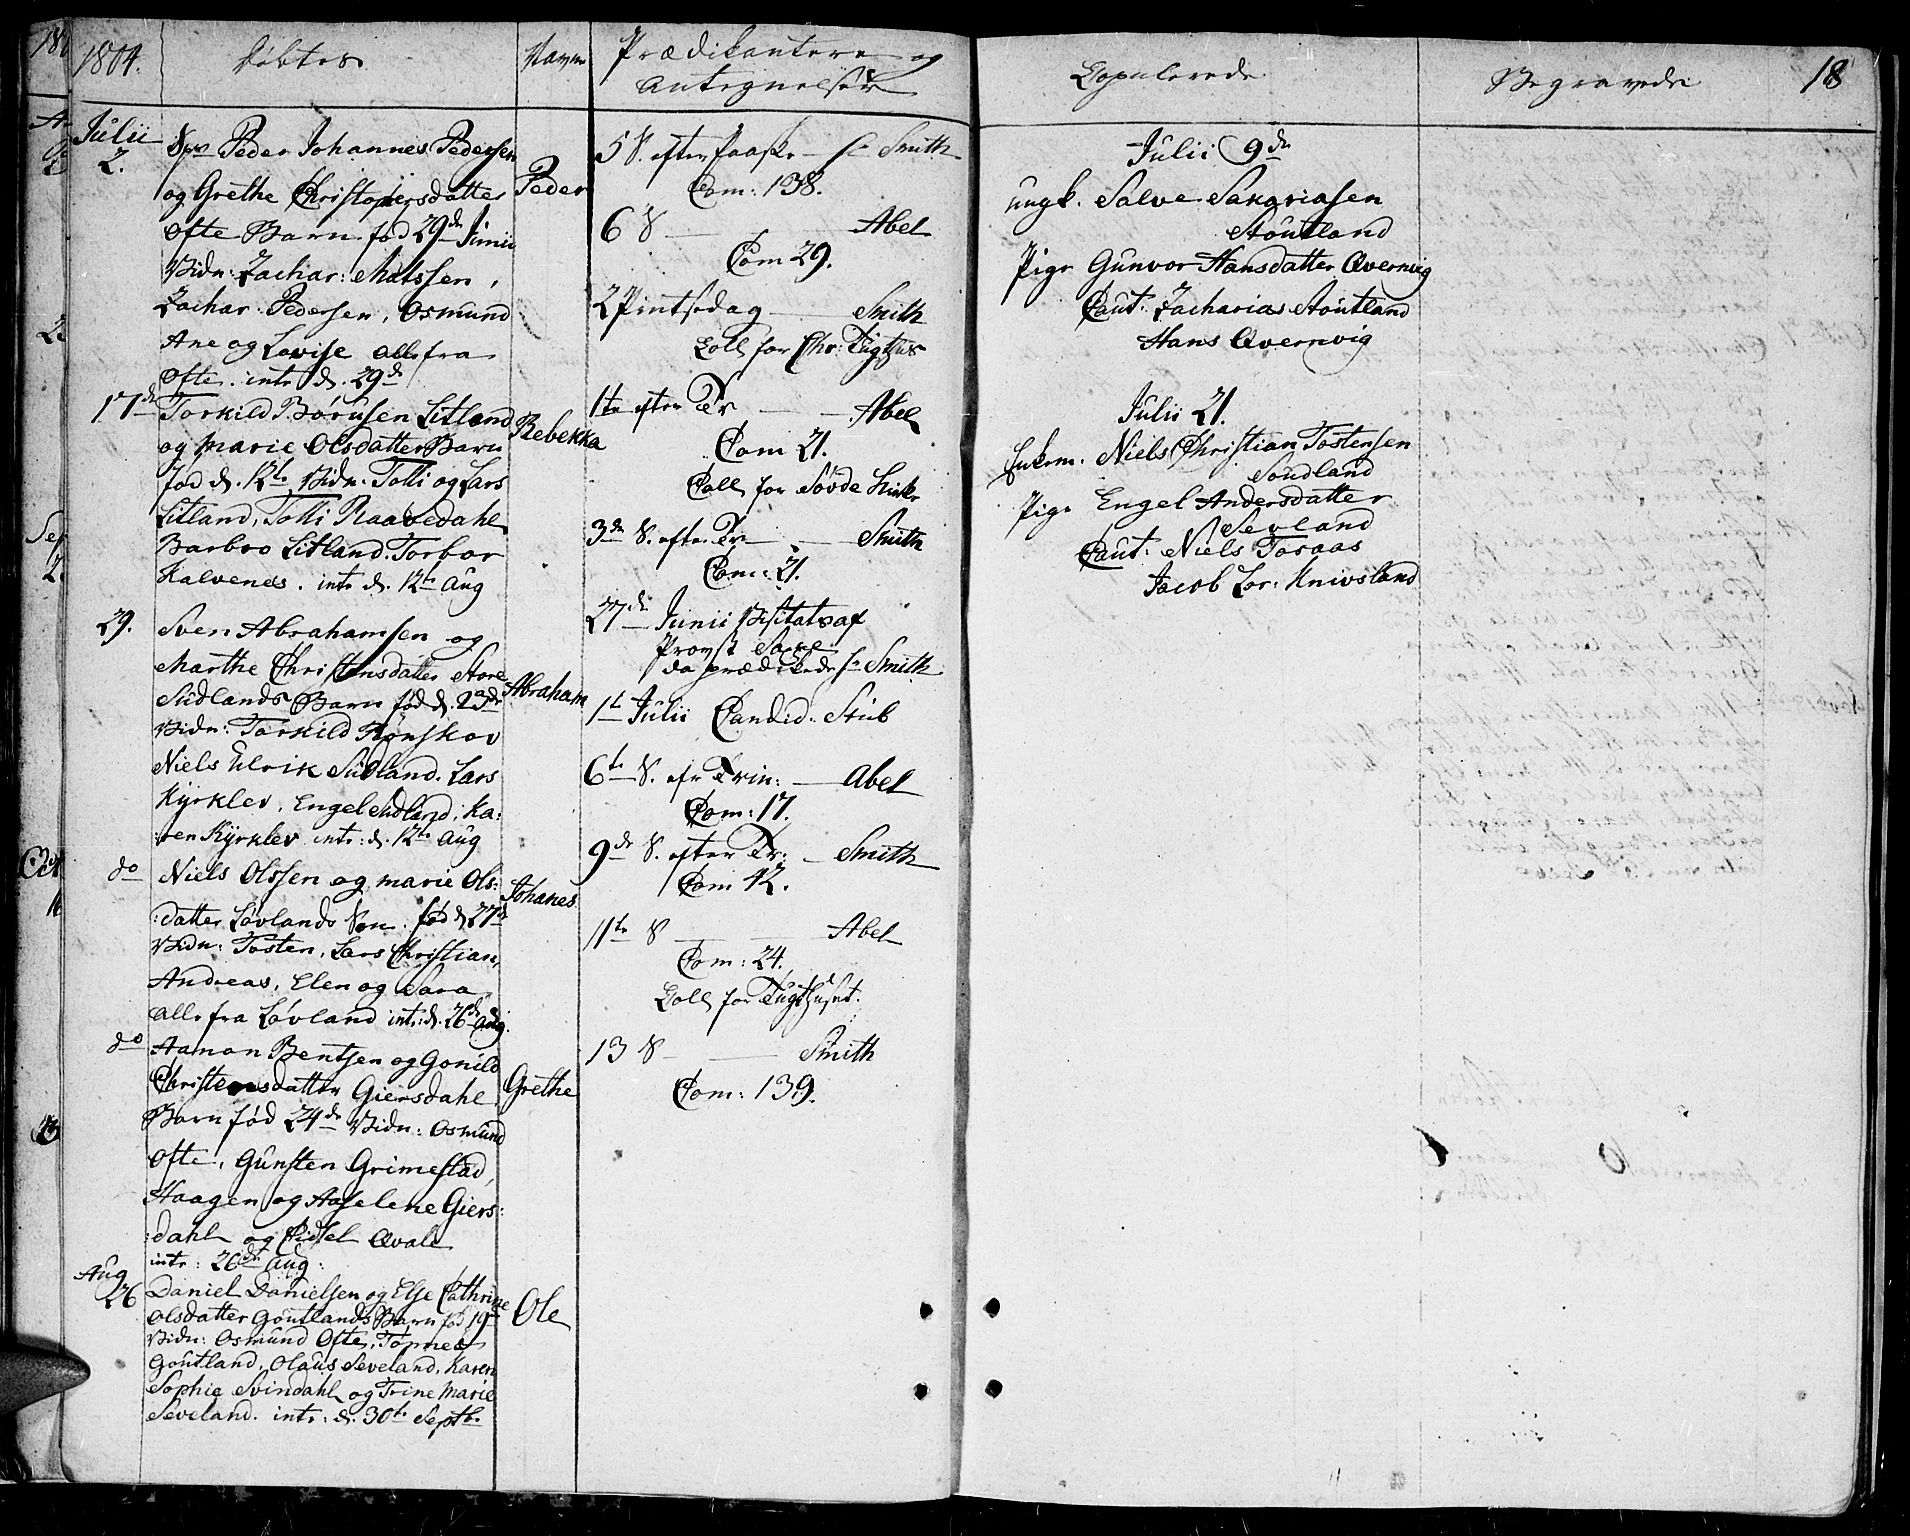 1804.
Døbte
Navne
Prædikantere og
Antegnelser
Julii
2.
Peder Johannes Pedersen
og Grethe Christophersdatter
Ofte Barn fød 29de Junii
Vidn: Zachar: Matssen,
Zachar: Pedersen, Osmund
Ane og Lovise alle fra
Ofte. intr d. 29de
Peder
17de
Torkild Børusen Litland
og Marie Olsdatter Barn
fød d. 12te Vidn. Tolli og Lars
Litland, Tolli Raavedahl
Barbro Litland. Torbor
Kalvenes. intr d. 12te Aug
Rebekka
29.
Sven Abrahamsen og
Marthe Christensdatter Store
Sudlands Barn fød d. 23de
Vidn: Torkild Rønskov
Niels Ulrik Sudland. Lars
Kyrklev, Engel Midland, Ka:
ren Kyrklev intr: d. 12te Aug
Abraham
do
Niels Olssen og Marie Ols:
:datter Løvlands Søn. fød d 27de
Vidn: Tosten, Lars Christian,
Andreas, Elen og Sara
alle fra Løvland intr: d. 26de Aug.
Johanes
do
Aamon Bentsen og Gonild
Christensdatter Giersdahl
Barn fød 24de Vidn: Osmund
Ofte, Gunsten Grimestad,
Haagen og Aaselene Giers:
:dahl og Sidsel Qvale
intr: 26de Aug:
Grethe
Aug
26
Daniel Danielsen og Else Cathrine
Olsdatter Goutlands Barn fød 19de
Vidn: Osmund Ofte, Tønnes
Goutland, Olaus Seveland, Karen
Sophie Svindahl og Trine Marie
Seveland. intr: d. 30te Septbr
Ole
5 S. efter Paaske — hr Smith
Com: 138.
6 S — Abel
Com 29.
2 Pintsedag — Smith
Coll for Chr: Tugthus
1te efter Tr — Abel
Com 21.
Coll for Søvde Kirke
3de S. efter Tr — Smith
Com: 21.
27de Junii Visitats af
Provst
da prædikede hr Smith
1te Julii Candid. Stub
6te S. eft Trin: — Abel
Com: 17.
9de S. efter Tr: — Smith
Com 42.
11te S — Abel
Com: 24.
Coll for Tugthuset.
13 S — Smith
Com: 139.
Copulerede
Begravede
18
Julii 9de
ungk. Salve Sakariasen
Stoutland
Pige Gunvor Hansdatter Qvernvig
Caut. Zacharias Stoutland
Hans Qvernvig
Julii 21.
Enkem. Niels Christian Tostensen
Soudland
Pige Engel Andersdatter
Sevland
Caut: Niels Tosaas
Jacob Lor: Knivsland